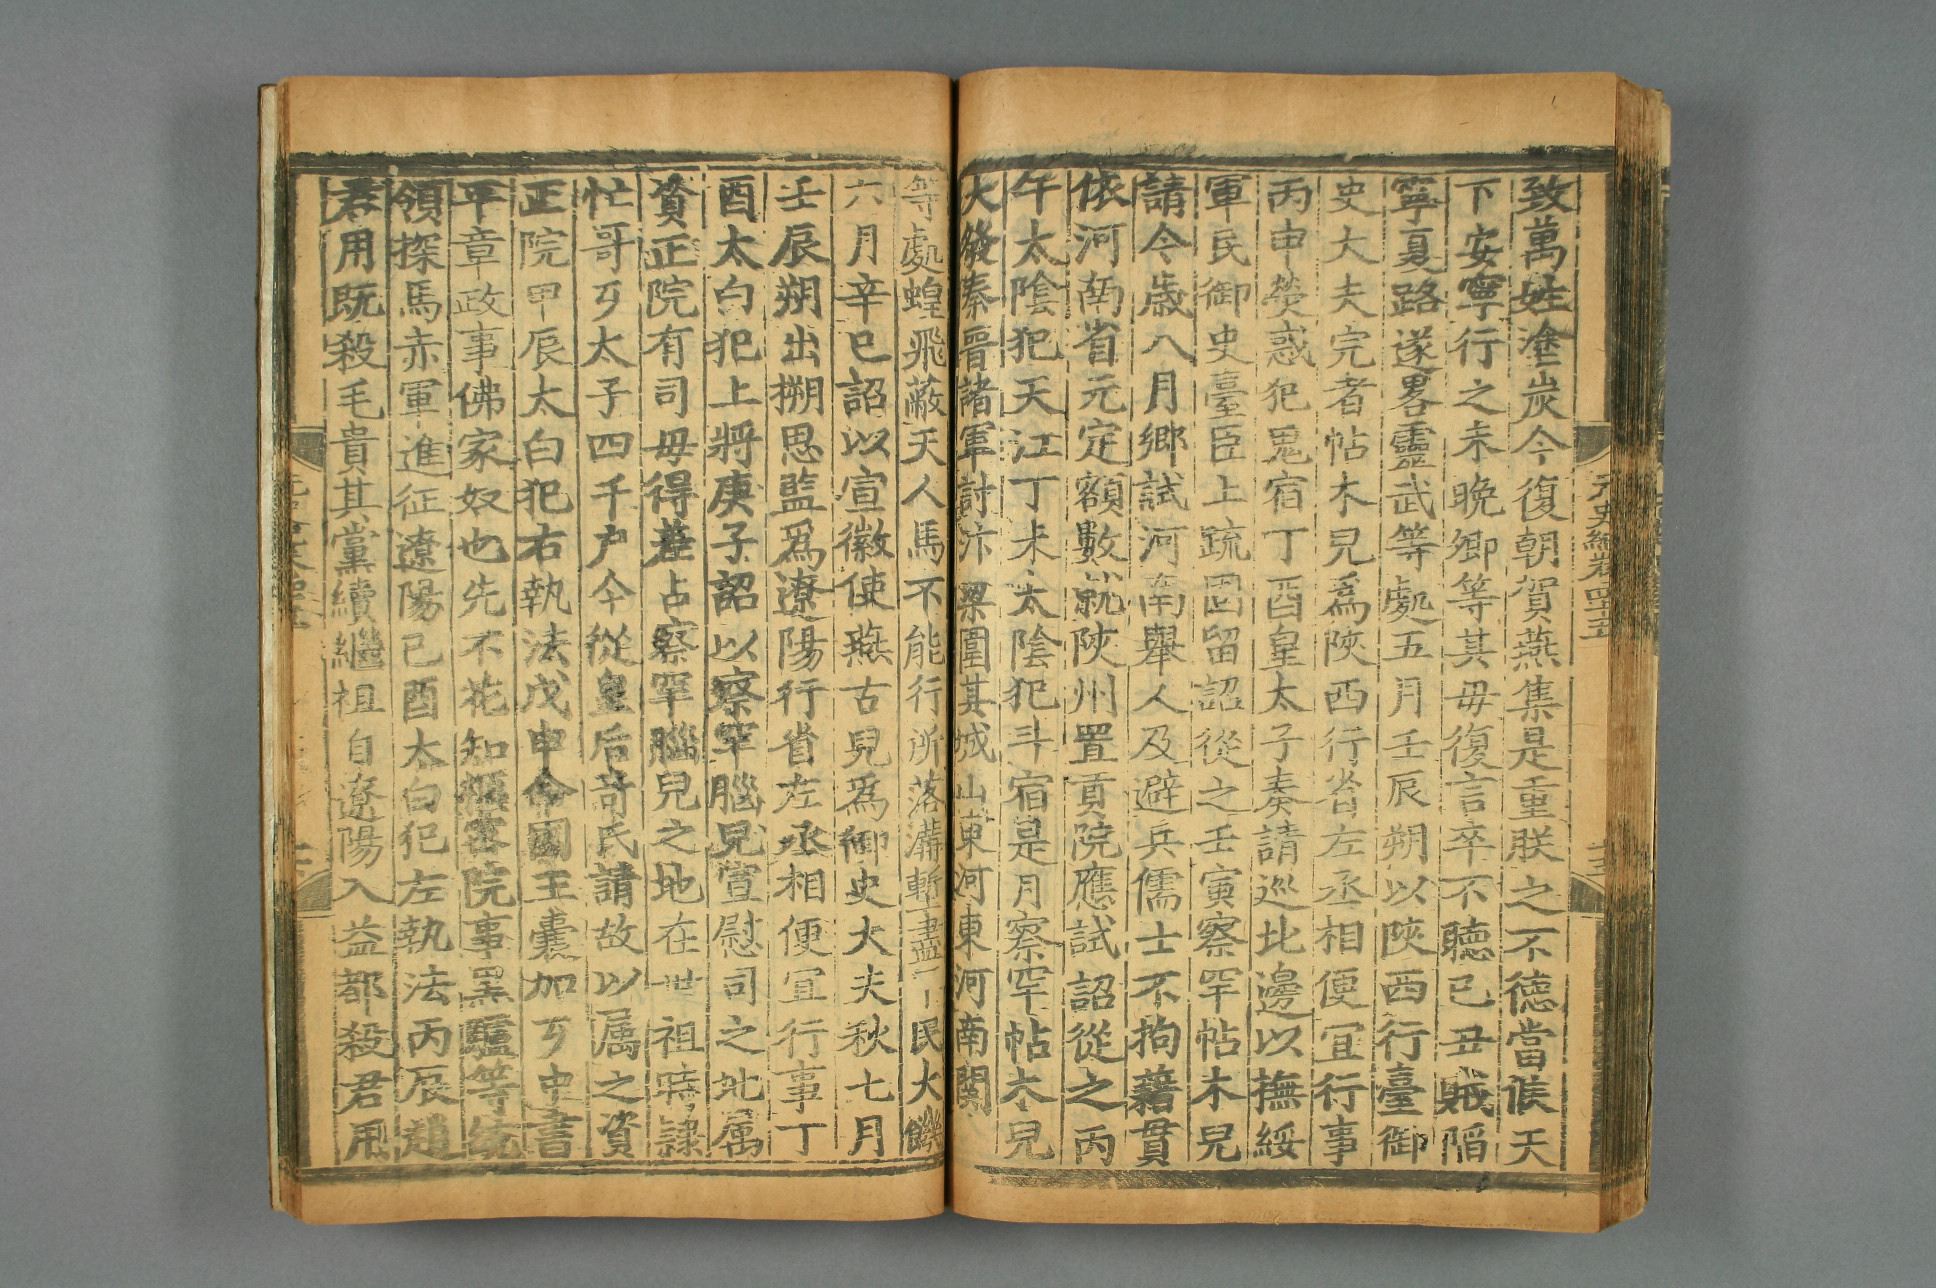 致萬姓塗炭今復朝賀燕集是重朕之不德當俟天
下安寧行之未晚卿等其毋復言卒不聽己丑賊陷
寧夏路遂畧靈武等處五月壬辰朔以陝西行臺御
史大夫完者帖木兒爲陝西行省左丞相便宜行事
丙申熒惑犯鬼宿丁酉皇太子奏請巡北邊以撫綏
軍民御史臺臣上疏固留詔從之壬寅察罕帖木兒
請今歲八月鄉試河南舉人及避兵儒士不拘籍貫
依河南省元定額數就陝州置貢院應試詔從之丙
午太陰犯天江丁未太陰犯斗宿是月察罕帖木兒
大發秦晉諸軍討汴梁圍其城山東河東河南關
等處蝗飛蔽天人馬不能行所落溝塹盡平民大饑
六月辛巳詔以宣徽使燕古兒爲御史大夫秋七月
壬辰朔出搠思監爲遼陽行省左丞相便宜行事丁
酉太白犯上將庚子詔以察罕腦兒宣慰司之地屬
資正院有司毋得差占察罕腦兒之地在世祖時隸
忙哥歹太子四千户今從皇后奇氏請故以属之資
正院甲辰太白犯右執法戊申命國王囊加歹中書
平章政事佛家奴也先不花知樞密院事黑驢等統
領探馬赤軍進征遼陽己酉太白犯左執法丙辰趙
君用既殺毛貴其黨續繼祖自遼陽入益都殺君用
元史續卷四十五
十五